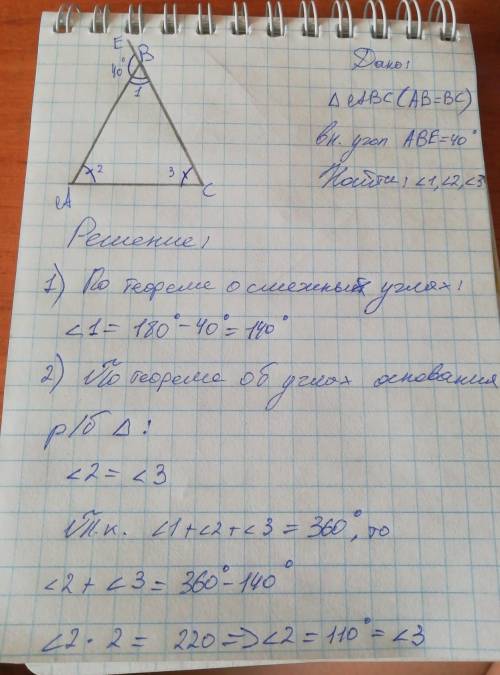 E
B
40°
1
2
3
A
C
Дано:
Δ ABC (AB=BC)
вн. угол ABE=40°
Найти: ∠1,∠2,∠3
Решение:
1) По теореме о смежных углах:
∠1 = 180° - 40° = 140°
2) По теорема об углах основания
р/б Δ:
∠2 = ∠3
Т.к. ∠1+∠2+∠3 = 360°, то
∠2 + ∠3 = 360° - 140°
∠2 · 2 = 220 => ∠2 = 110° = ∠3